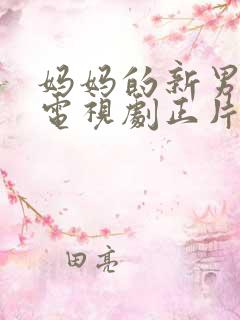 妈妈的新男
電視劇正片
田亮